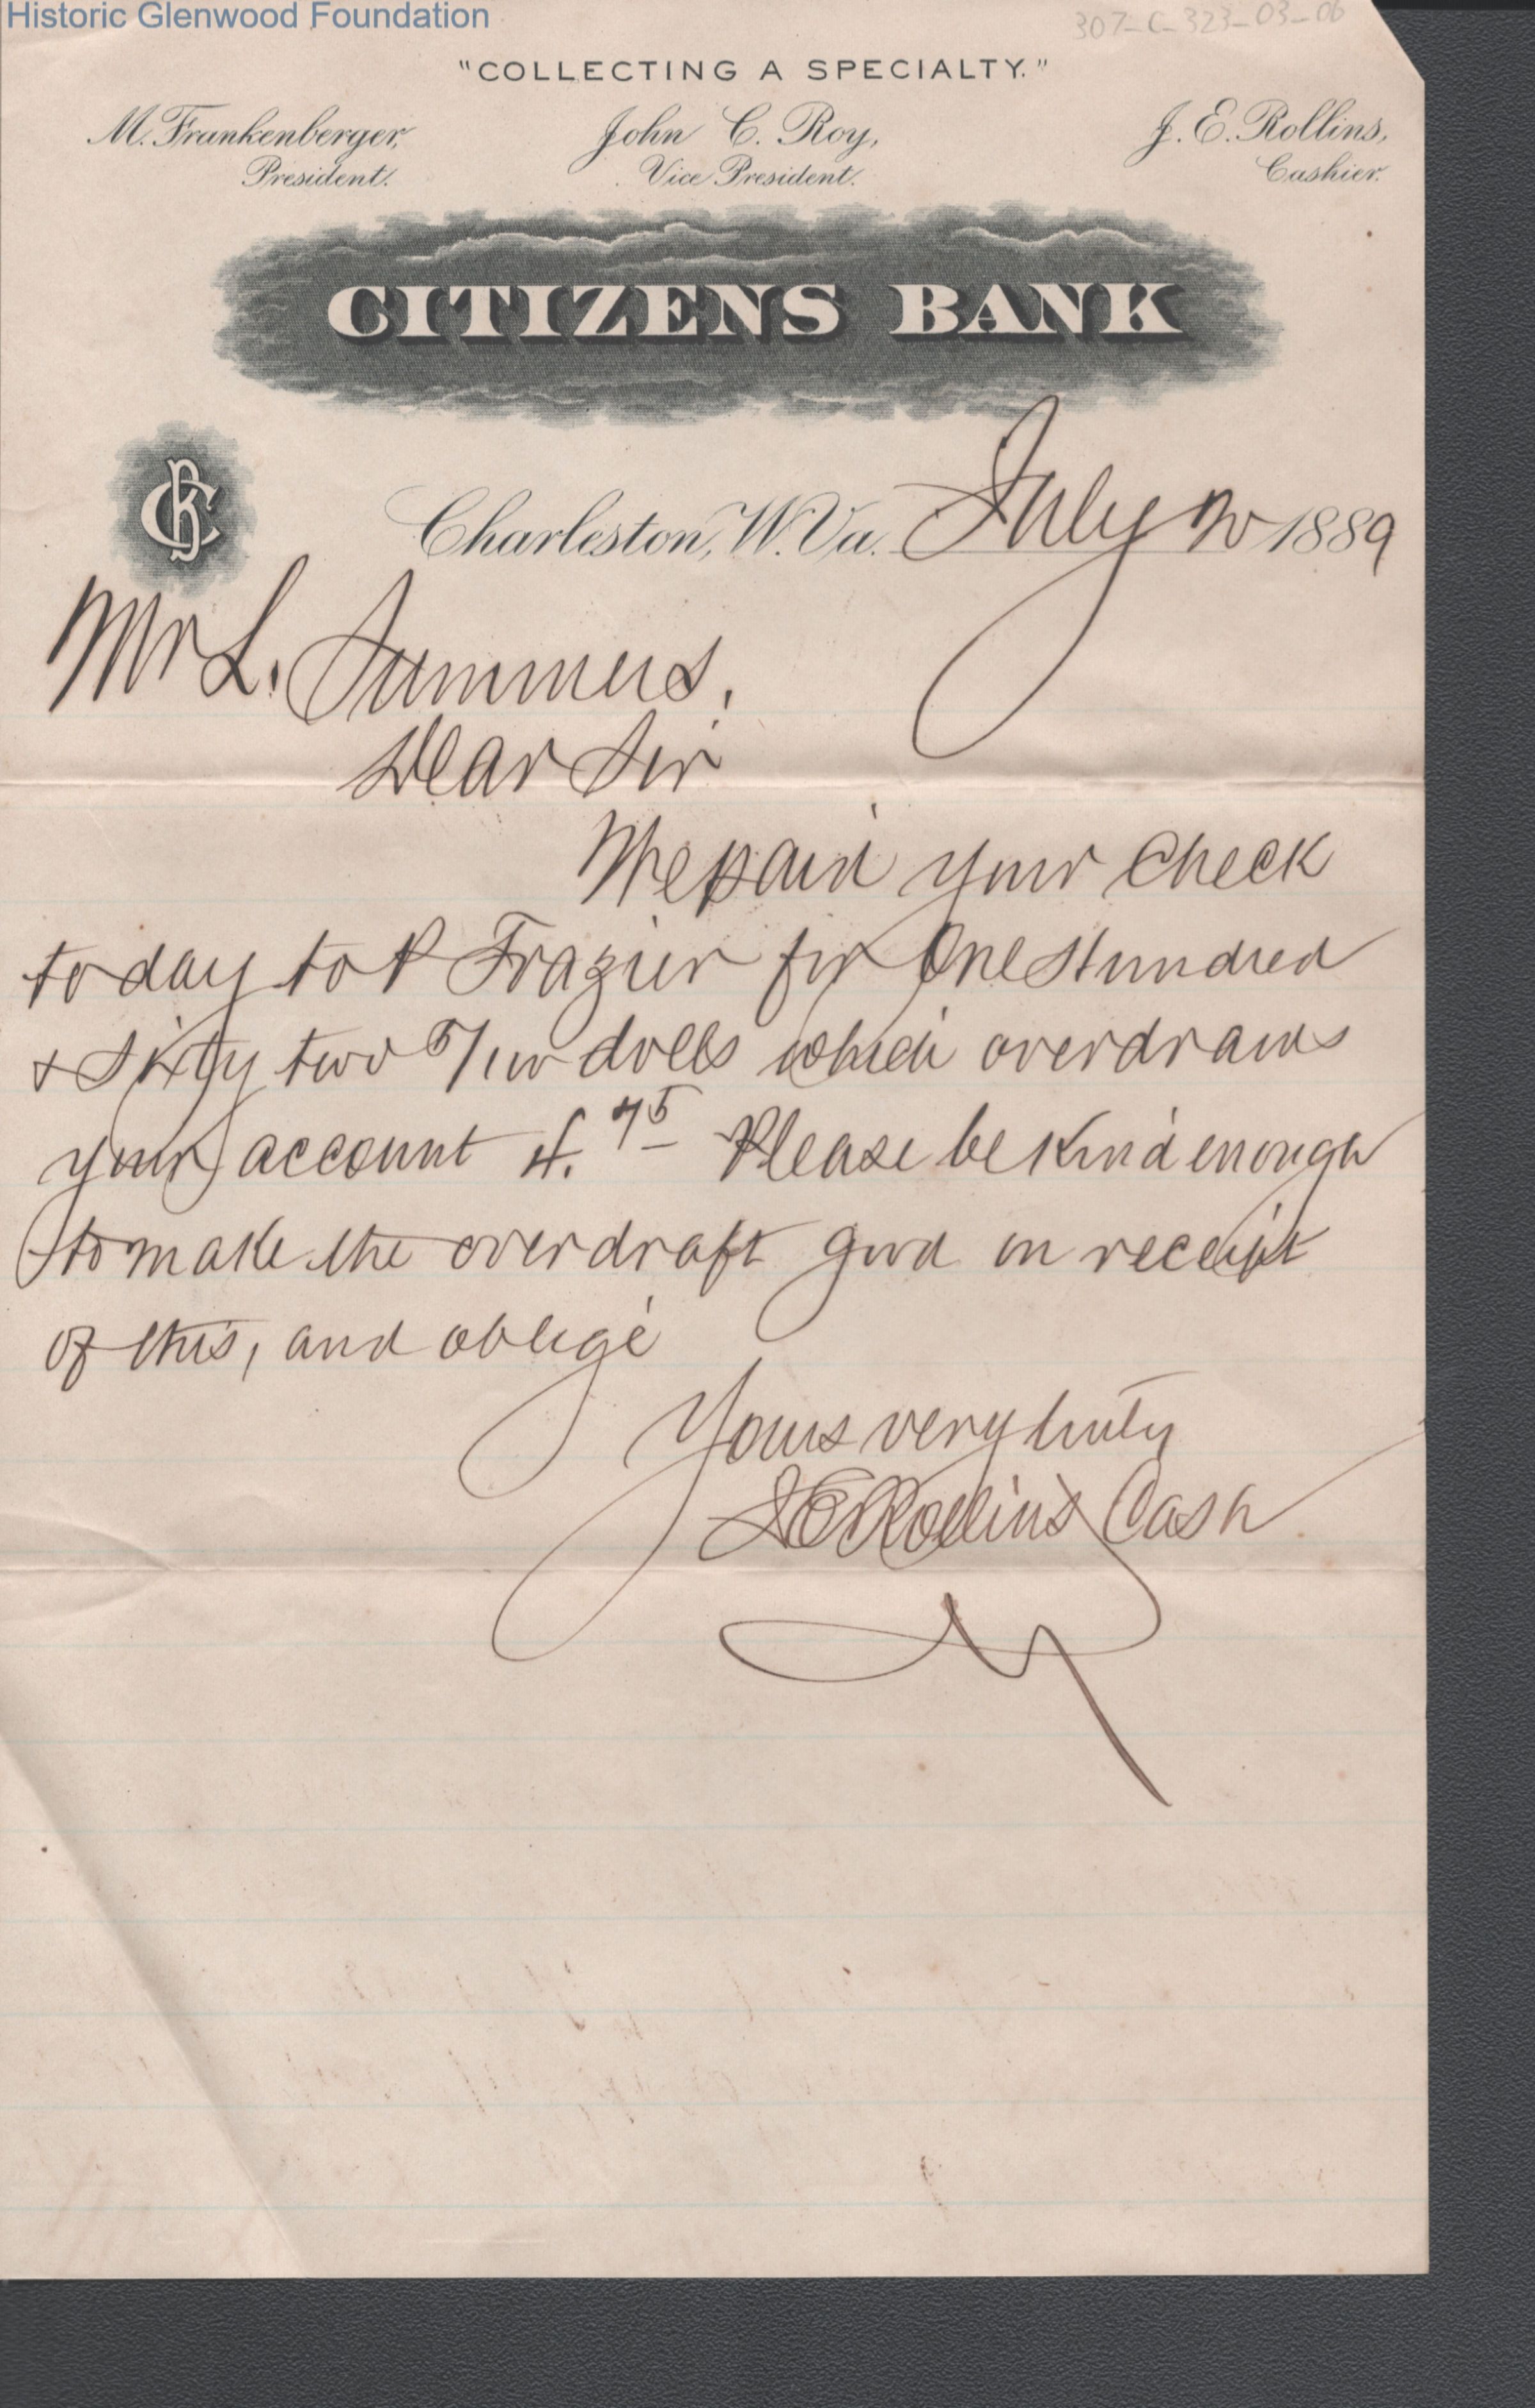 Historic Glenwood Foundation
307-C-323-03-06
"COLLECTING A SPECIALTY."
M. Frankenberger, John C. Roy, J. E. Rollins,
President. Vice President. Cashier.
CITIZENS BANK
CB
Charleston, W. Va. July 1889
Mr L. Summers,
Dear Sir
We paid your check
today to P Frazier for One Hundred
& Sixty two 5/100 dolls which overdraws
your account 4.75 Please be kind enough
to make the overdraft good on receipt
of this, and oblige
Yours very truly
J E Rollins Cash